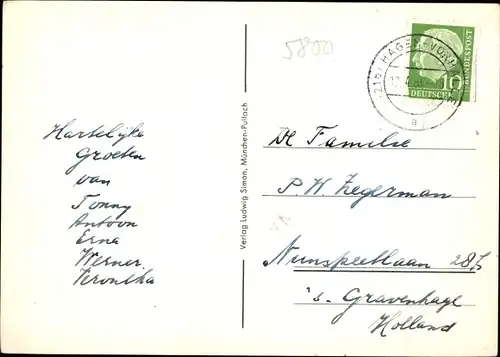 5800
(21b) HAGEN-VORH
a
10
DEUTSCHE
BUNDESPOST
Hartelijke
groeten
van
Tonny
Antoon
Erna
Werner
Veronika
Verlag Ludwig Simon, München-Pullach
De Familie
P. W. Zegerman
Nunspeetlaan 287
's. Gravenhage
Holland